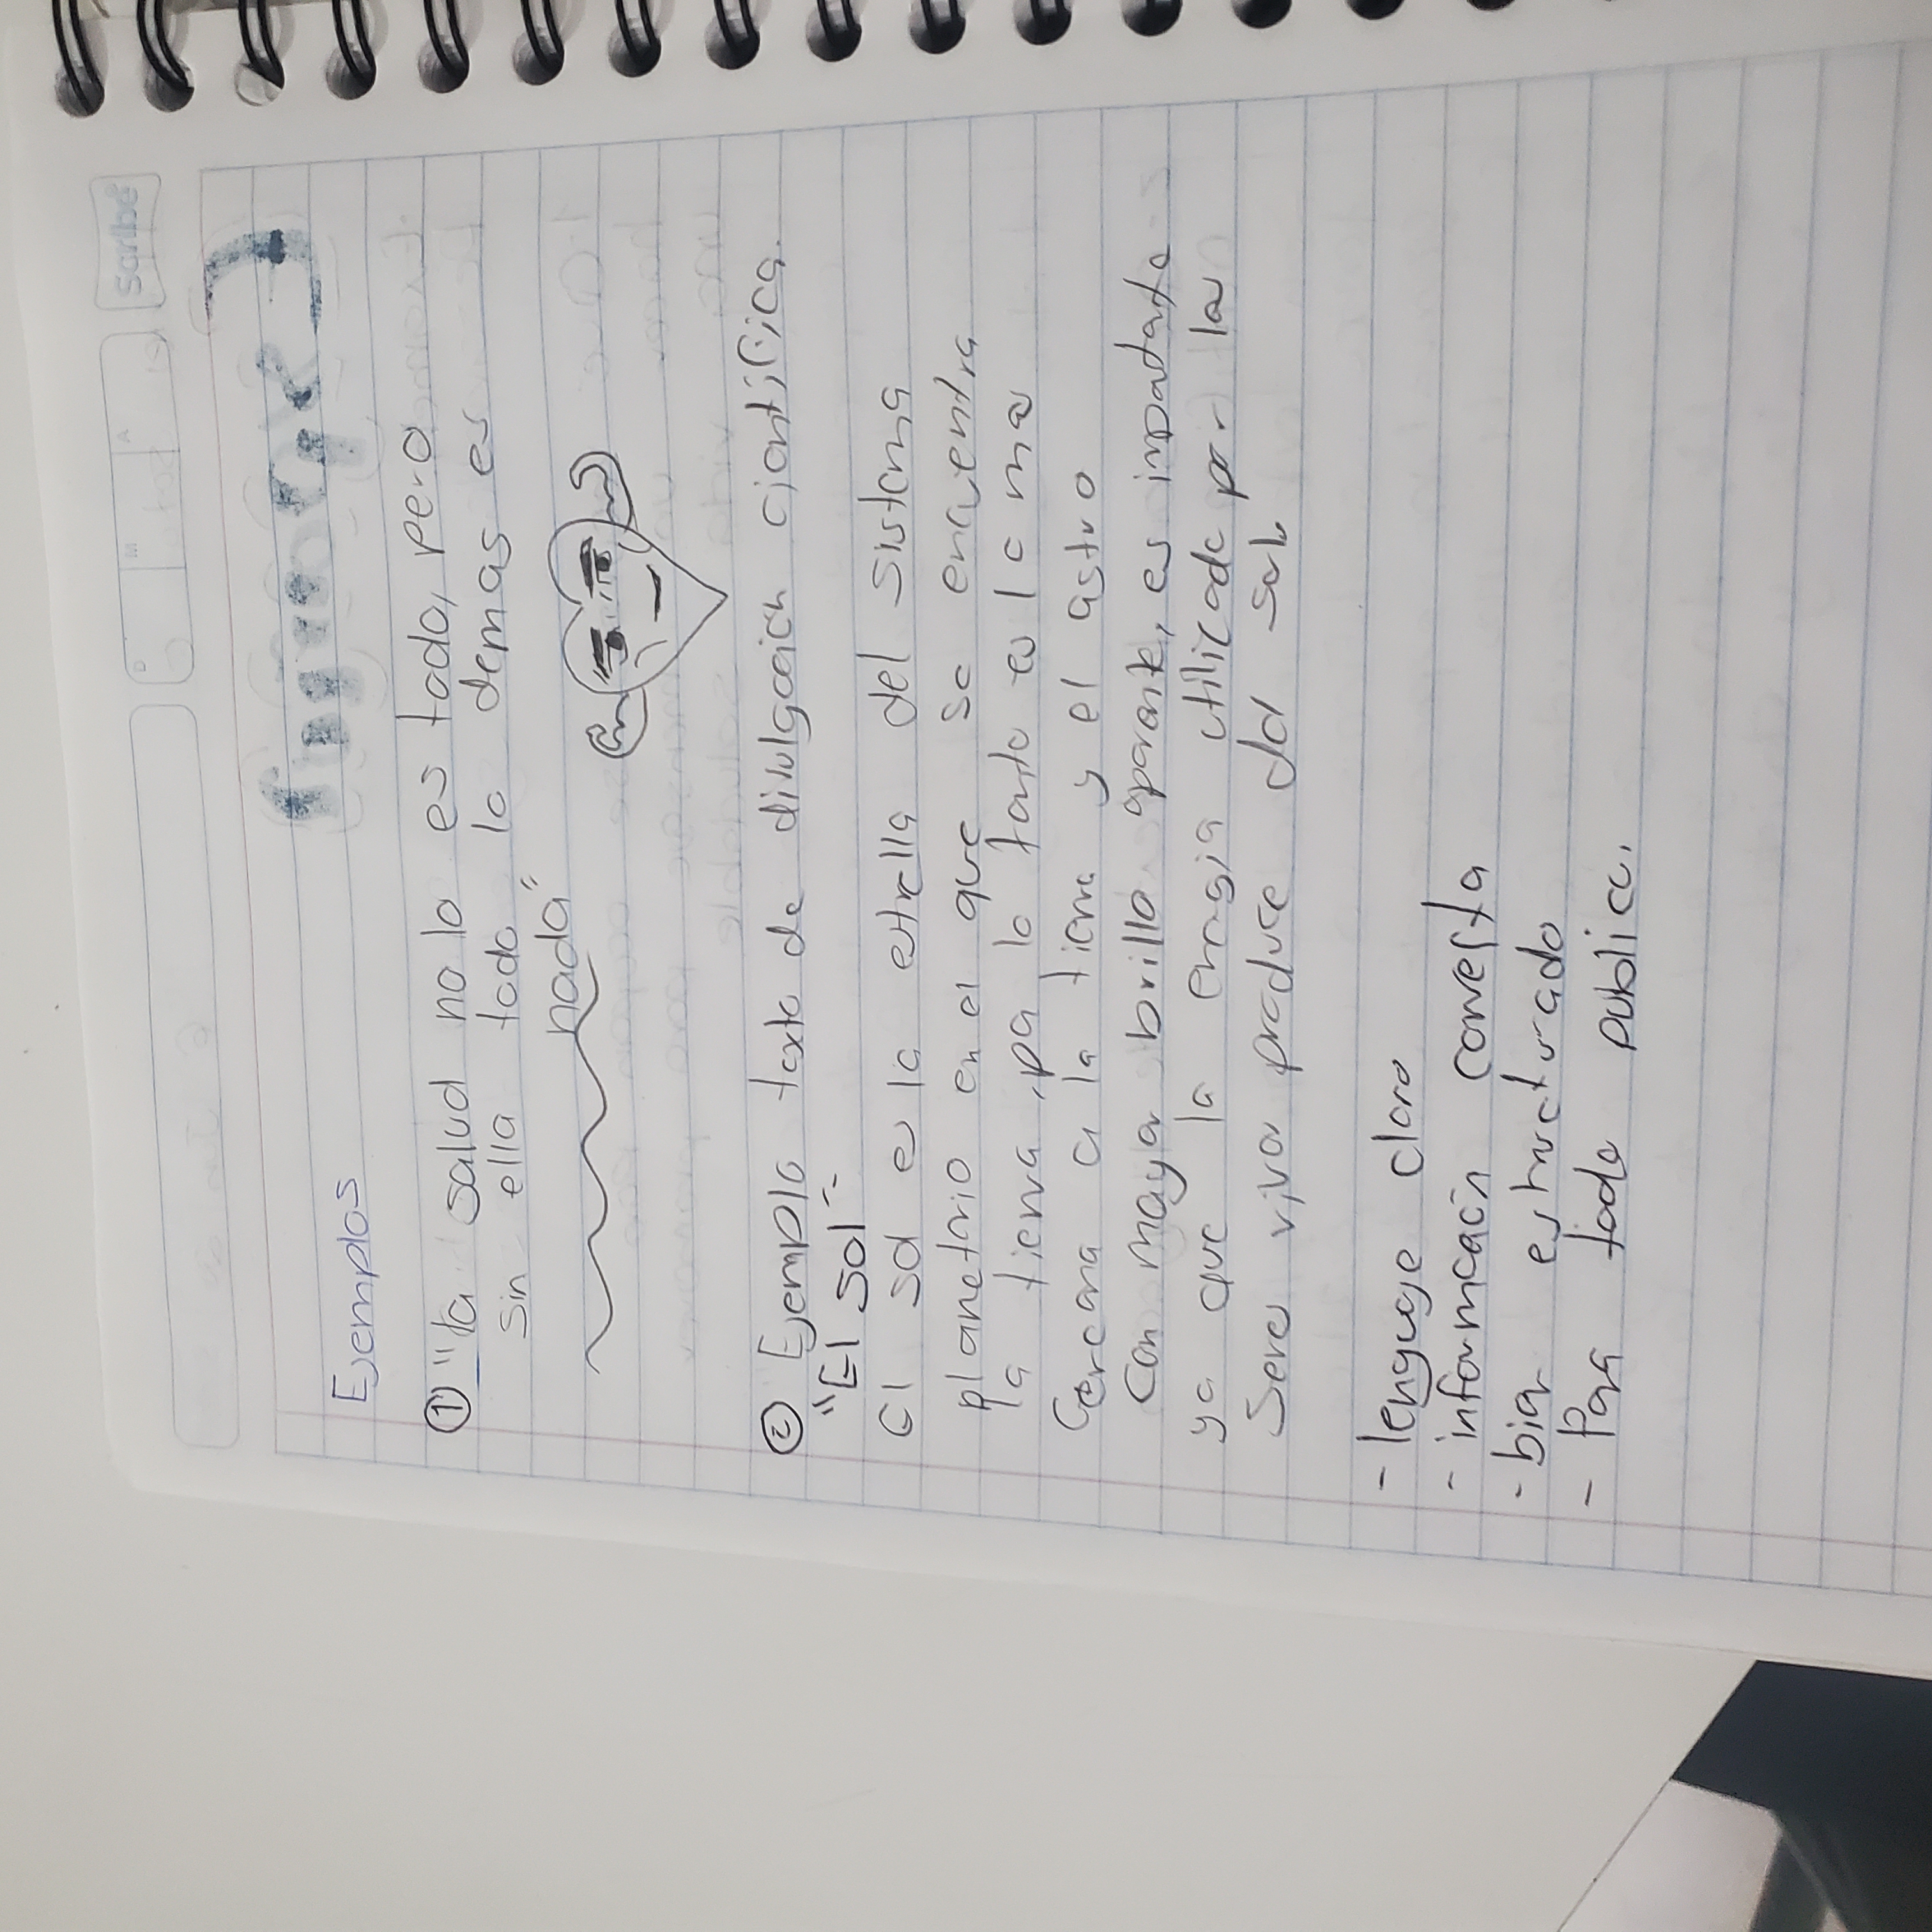 Scribe
D M A
Ejemplos
① "la salud no lo es todo, pero
sin ella todo lo demas es
nada"
② Ejemplo texto de divulgación cientifica.
"El sol"
El sol es la estrella del sistema
planetario en el que se encuentra
la tierra, por lo tanto es la mas
Cercana a la tierra y el astro
Con mayor brillo aparente, es importante
ya que la energia utilizada por los
Seres vivos produce del
- lenguaje claro
- información correcta
- bien estructurado
- Para todo publico.